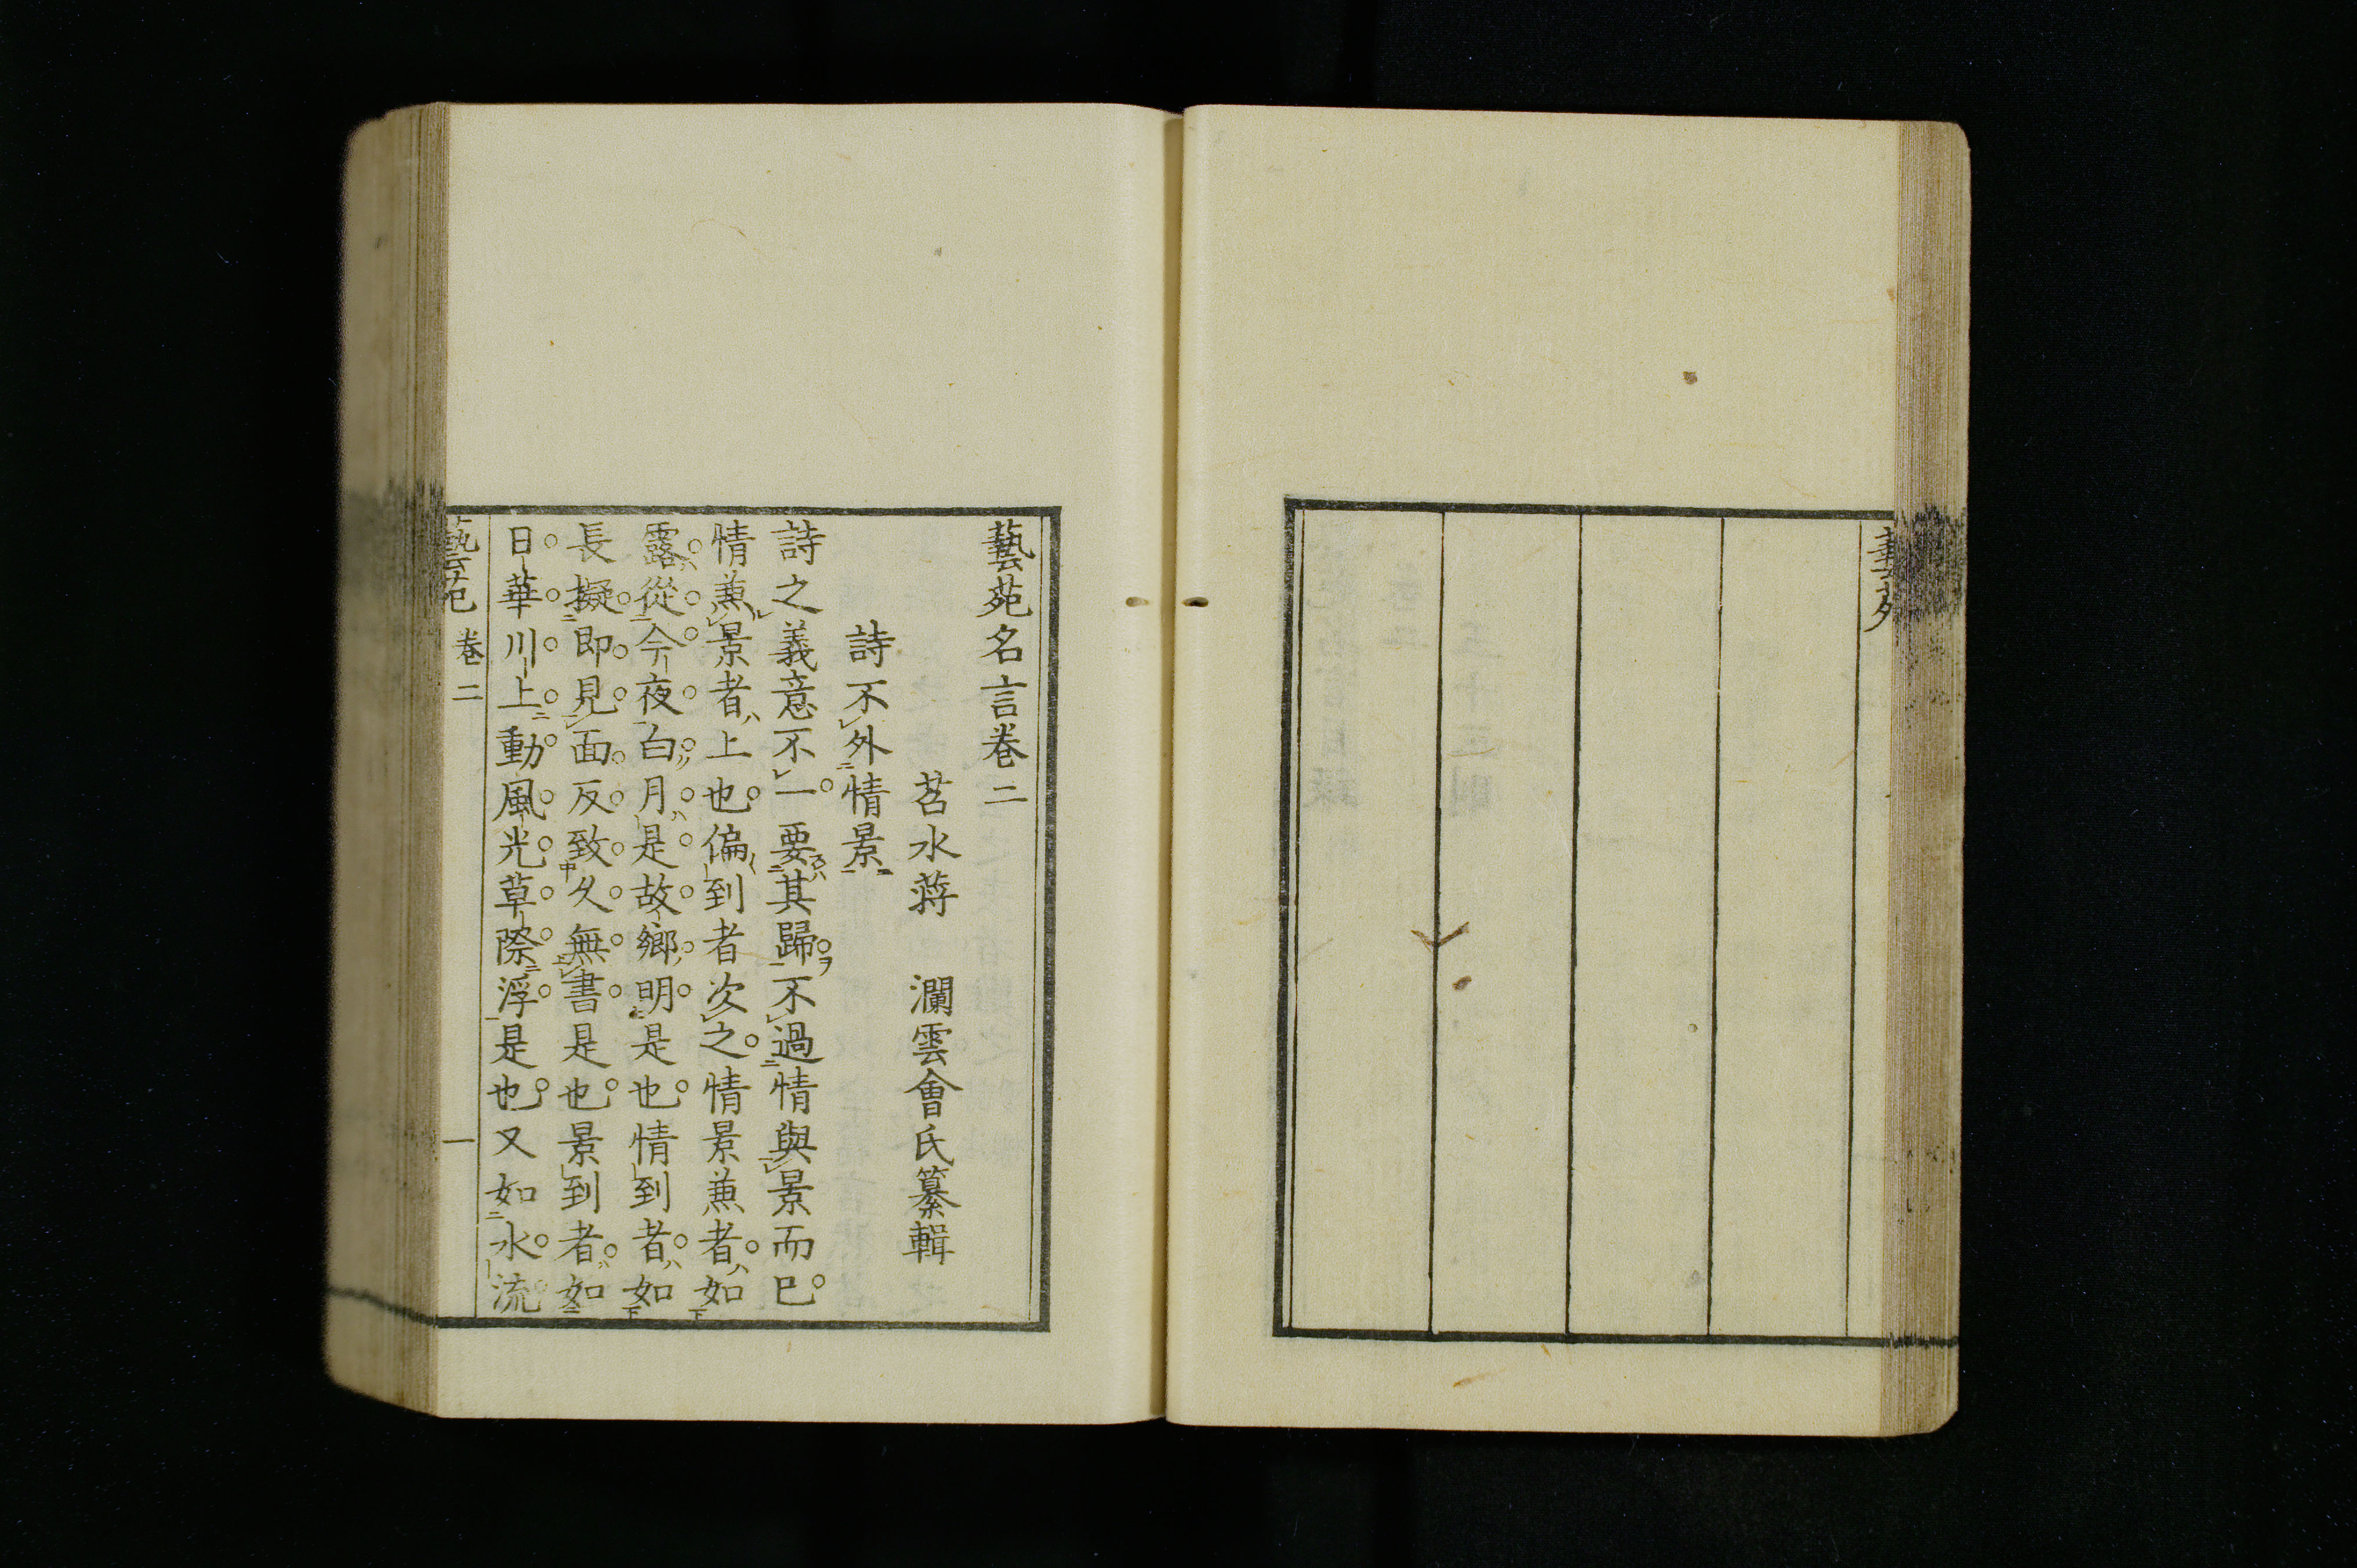 藝苑名言卷二
苕水蔣　瀾雲會氏纂輯
詩不外情景
詩之義意不一要其歸不過情與景而已
情兼景者上也偏到者次之情景兼者如
露從今夜白月是故鄉明是也情到者如
長擬即見面反致久無書是也景到者如
日華川上動風光草際浮是也又如水流
藝苑　卷二　一